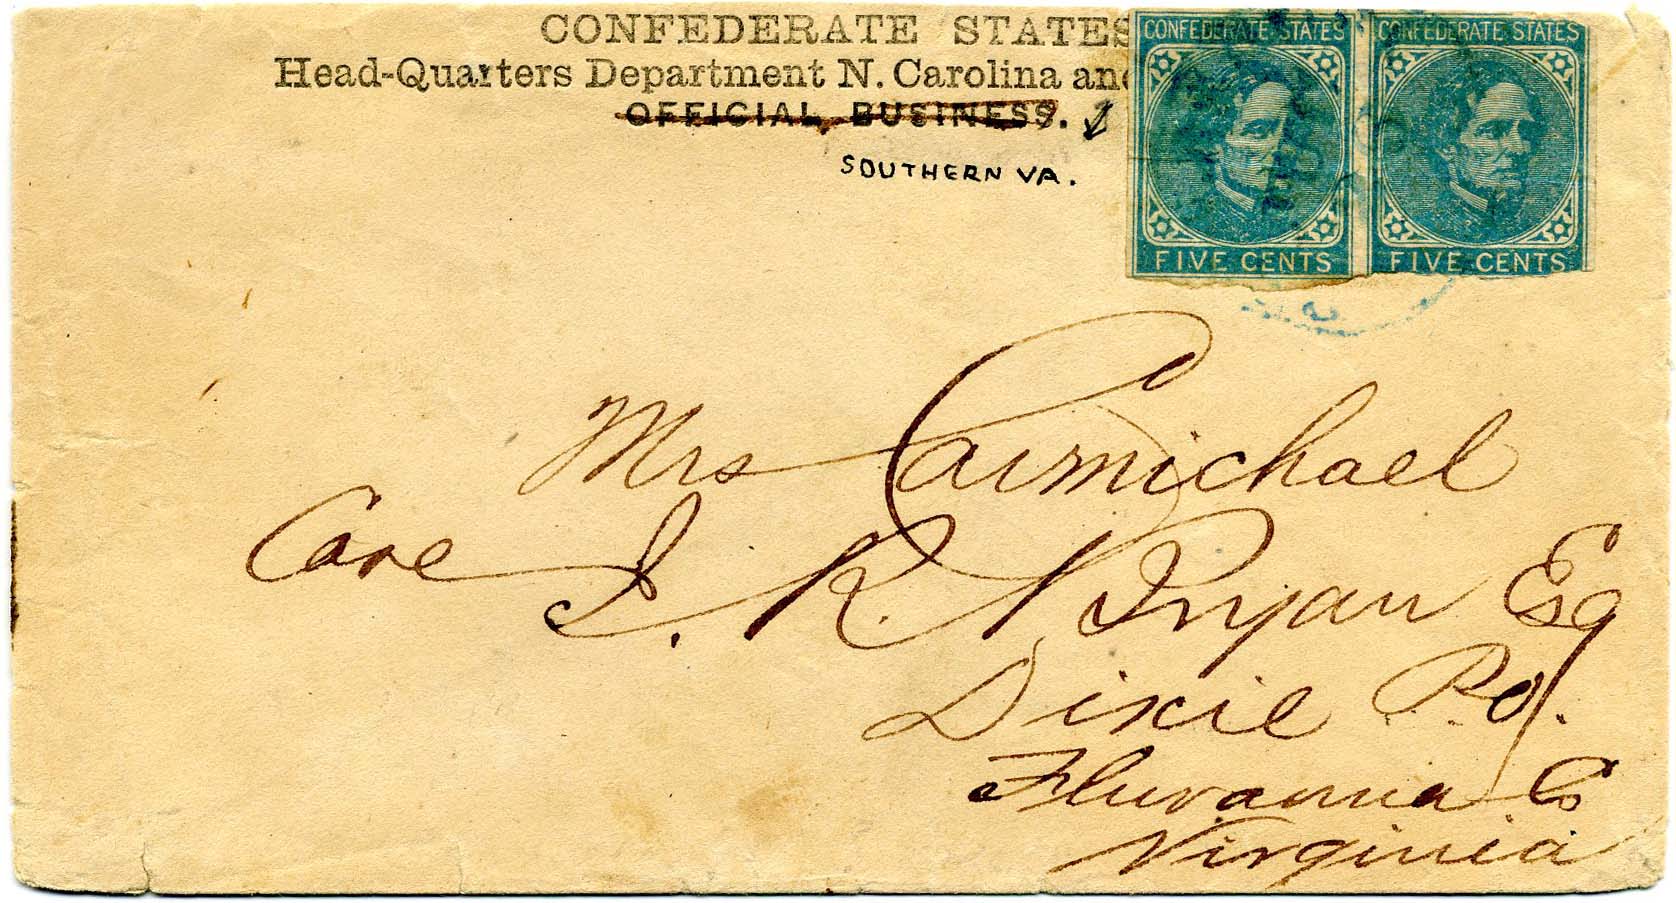 CONFEDERATE STATES
Head-Quarters Department N. Carolina and
OFFICIAL BUSINESS.
SOUTHERN VA.
CONFEDERATE STATES
FIVE CENTS
CONFEDERATE STATES
FIVE CENTS
Mrs Carmichael
Care J. R. N Bryan Esq
Dixie P.O.
Fluvanna Co
Virginia